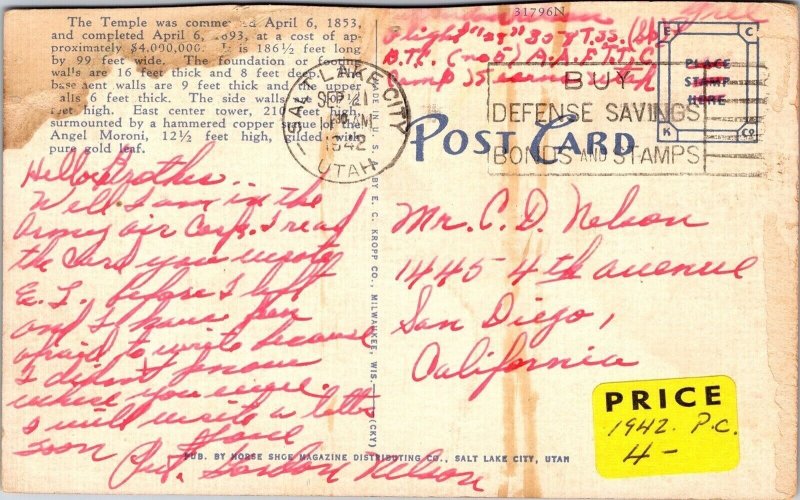 The Temple was commenced April 6, 1853,
and completed April 6, 1893, at a cost of ap-
proximately $4,000,000. It is 186½ feet long
by 99 feet wide. The foundation or footing
walls are 16 feet thick and 8 feet deep. The
basement walls are 9 feet thick and the upper
walls 6 feet thick. The side walls are
feet high. East center tower, 210 feet high,
surmounted by a hammered copper statue of the
Angel Moroni, 12½ feet high, gilded with
pure gold leaf.
Hello Brother.
Well I am in the
Army air Corps. I read
the card you wrote
E. J. before I left
and I have been
afraid to write because
I didn't know
where you were.
I will write a letter
soon
Love
Pvt. Gordon Nelson
SALT LAKE CITY
SEP 21
PM
1942
UTAH
MADE IN U.S.A. BY E. C. KROPP CO., MILWAUKEE, WIS. (CKY)
31796N
Free
Flight "33" 307 T.S.S. (Sp)
B.T.C. (no 5) A.A.F.T.T.C.
Camp Kearns Utah
BUY
DEFENSE SAVINGS
BONDS AND STAMPS
E C
PLACE
STAMP
HERE
K CO
POST CARD
Mr. C. D. Nelson
1445 4th avenue
San Diego,
California
PRICE
1942. P.C.
4-
PUB. BY HORSE SHOE MAGAZINE DISTRIBUTING CO., SALT LAKE CITY, UTAH